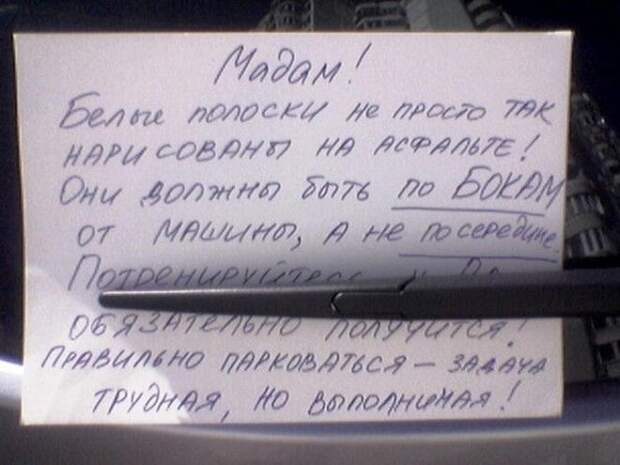 Мадам!
Белые полоски не просто так
нарисованы на асфальте!
Они должны быть по БОКАМ
от машины, а не посередине.
Потренируйтесь
обязательно получится!
Правильно парковаться – задача
трудная, но выполнимая!